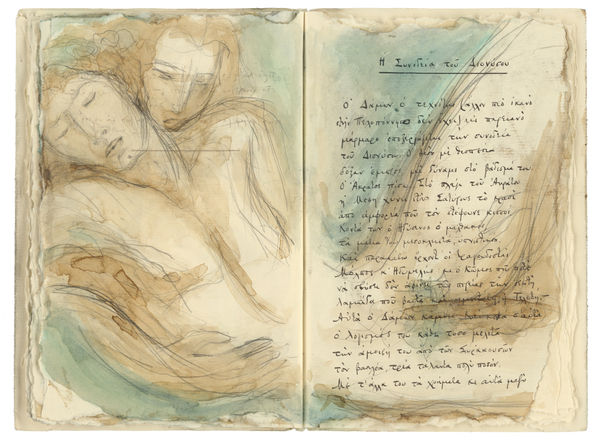 Η Συνοδεία τοῦ Διονύσου
Ο Δάμων ὁ τεχνίτης (ἄλλον πιὸ ἱκανὸ
στὴν Πελοπόννησο δὲν ἔχει) εἰς παριανὸ
μάρμαρο ἐπεξεργάζεται τὴν συνοδεία
τοῦ Διονύσου. Ὁ θεὸς μὲ θεσπεσία
δόξαν ἐμπρός, μὲ δύναμι στὸ βάδισμά του.
Ὁ Ἄκρατος πίσω. Στὸ πλάγι τοῦ Ἀκράτου
ἡ Μέθη χύνει στοὺς Σατύρους τὸ κρασὶ
ἀπὸ ἀμφορέα ποὺ τὸν στέφουνε κισσοί.
Κοντά των ὁ Ἡδύοινος ὁ μαλθακός,
τὰ μάτια του μισοκλειστά, ὑπνωτικός.
Καὶ παρακάτω ἔρχοντ' οἱ τραγουδισταὶ
Μόλπος κ' Ἡδυμελής, κι ὁ Κῶμος ποὺ ποτὲ
νὰ σβύσει δὲν ἀφίνει τῆς πορείας τὴν σεπτὴ
λαμπάδα ποὺ βαστᾶ καὶ, σεμνοτάτη, ἡ Τελετή.-
Αὐτὰ ὁ Δάμων κάμνει. Καὶ κοντὰ σ' αὐτὰ
ὁ λογισμός του κάθε τόσο μελετᾶ
τὴν ἀμοιβή του ἀπὸ τῶν Συρακουσῶν
τὸν βασιλέα, τρία τάλαντα, πολὺ ποσόν.
Μὲ τ' ἄλλα του τὰ χρήματα κι αὐτὰ μαζὺ